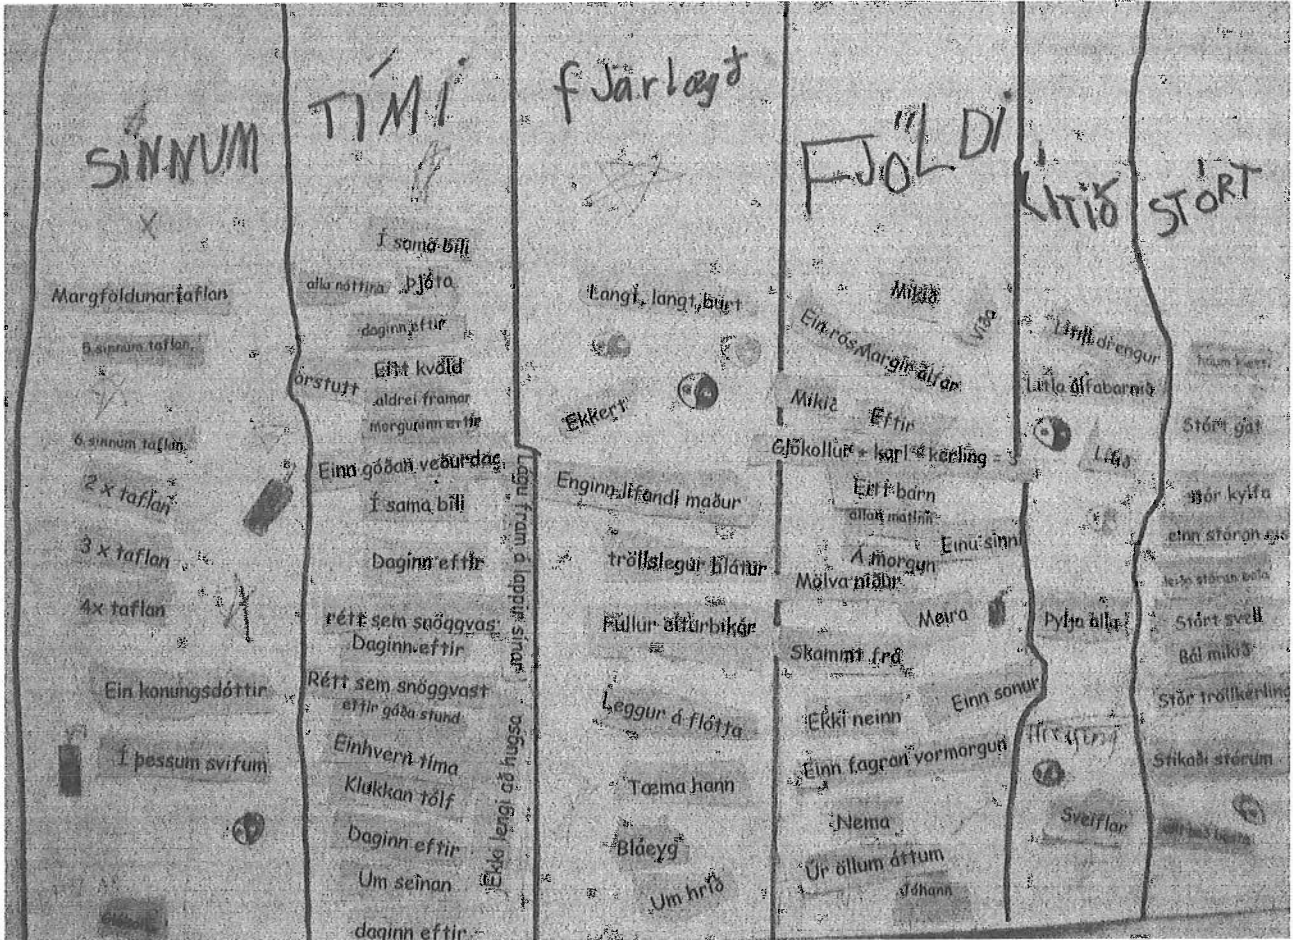 SINNUM
Margföldunartaflan
5 sinnum taflan
6 sinnum taflan
2 x taflan
3 x taflan
4x taflan
Ein konungsdóttir
Í þessum svifum
TÍMI
Í sama bili
alla nóttina
Þjóta
daginn eftir
Eitt kvöld
örstutt
aldrei framar
morguninn eftir
Einn góðan veðurdag
Í sama bili
Daginn eftir
rétt sem snöggvas
Daginn eftir
Rétt sem snöggvast
eftir góða stund
Einhvern tíma
Klukkan tólf
Daginn eftir
Um seinan
daginn eftir
Lagði fram á lappir sínar
Ekki lengi að hugsa
fJarlægð
Langt, langt burt
Ekkert
Enginn lifandi maður
tröllslegur hlátur
Fullur silfurbikar
Leggur á flótta
Tæma hann
Bláeyg
Um hríð
FJÖLDI
Mikið
Víða
Ein rós
Margir álfar
Mikið
Eftir
Glókollur + karl + kerling = 3
Eitt barn
allan matinn
Einu sinni
Á morgun
Mölva niður
Meira
Skammt frá
Einn sonur
Ekki neinn
Einn fagran vormorgun
Nema
Úr öllum áttum
Jóhann
LÍTIÐ
Lítill drengur
Litla álfabarnið
Lítið
Pylsa alla
Sveiflar
STÓRT
Stórt gat
stór kylfa
einn stóran
Stórt svell
Bál mikið
Stór tröllkerling
Stikaði stórum